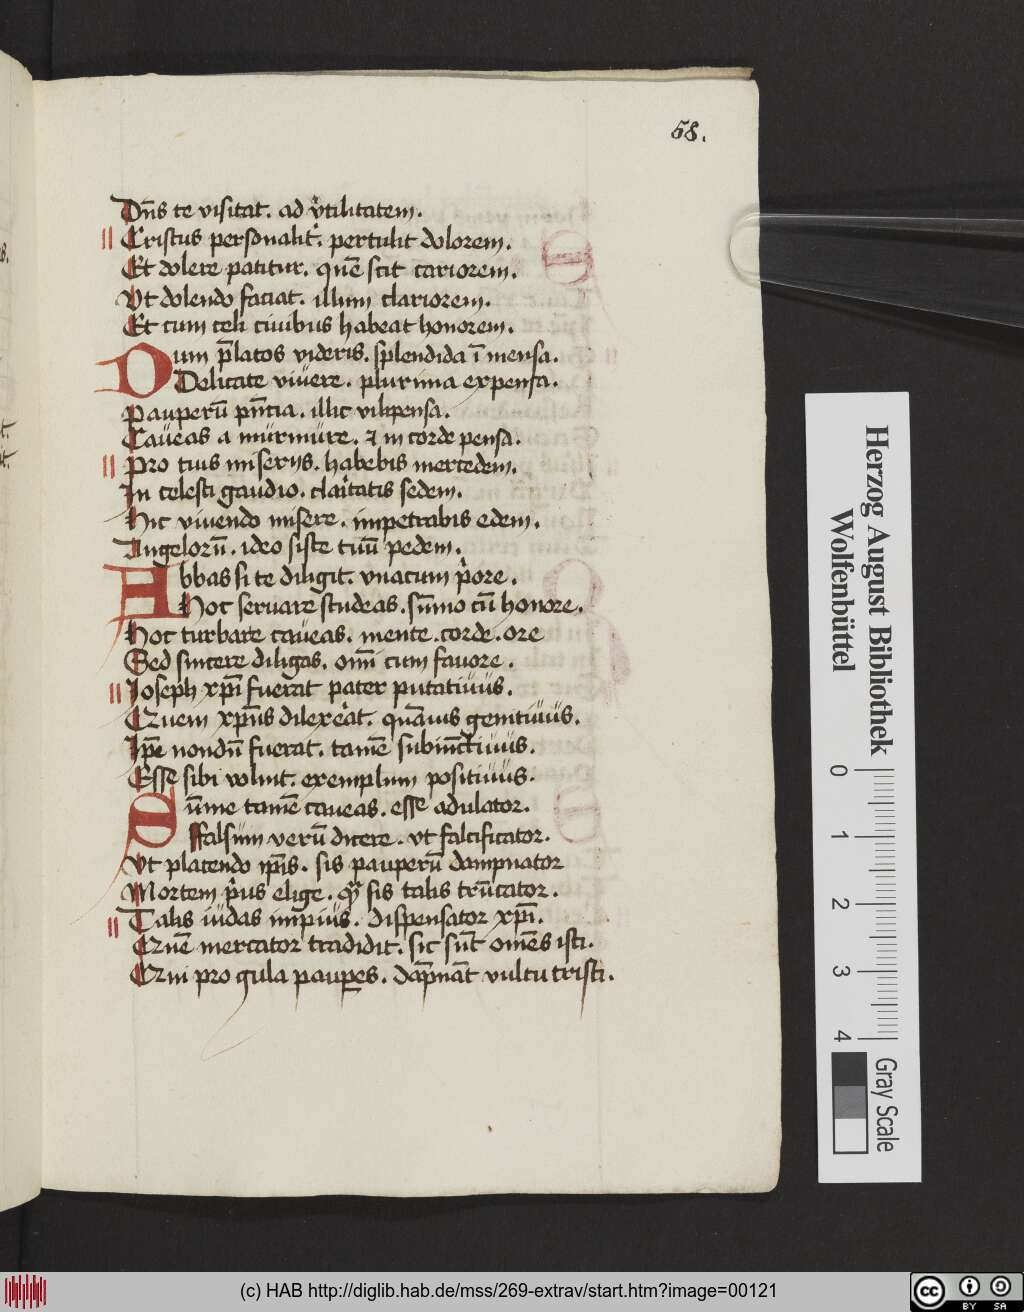 58.
Dn̄s te visitat. ad vtilitatem.
Cristus personalit̾. pertulit dolorem.
Et dolere patitur. quē scit cariorem.
Vt dolendo faciat. illum clariorem.
Et cum celi ciuibus habeat honorem.
Dum p̄latos videris. splendida ī mensa.
Delicate viuere. plurima expensa.
Pauperū pn̄cia. illic vilipensa.
Caueas a murmure. ⁊ in corde pensa.
Pro tuis miserijs. habebis mercedem.
In celesti gaudio. claritatis sedem.
Hic viuendo misere. impetrabis edem.
Angelorū. ideo siste tuū pedem.
Abbas si te diligit. vnacum pͥore.
Hoc seruare studeas. sūmo cū honore.
Hoc turbare caueas. mente. corde. ore
Sed sincere diligas. om̄i cum fauore.
Ioseph xp̄i fuerat pater putatiuus.
Quem xpn̄s dilexeat. quāuis genitiuus.
Ip̄e nondū fuerat. tamē subiūctiuus.
Esse sibi voluit. exemplum positiuus.
Sūme tamē caueas. esse adulator.
ffalsum verū dicere. vt falcificator.
Vt placendo ip̄is. sis pauperū dampnator
Mortem pͥus elige. qͣ sis talis trūcator.
Talis iudas impius. dispensator xp̄i.
Quē mercator tradidit. sic sūt om̄es isti.
Qui pro gula paupes. dāpnāt vultu tristi.
Herzog August Bibliothek
Wolfenbüttel
0 1 2 3 4
Gray Scale
(c) HAB http://diglib.hab.de/mss/269-extrav/start.htm?image=00121
cc BY SA